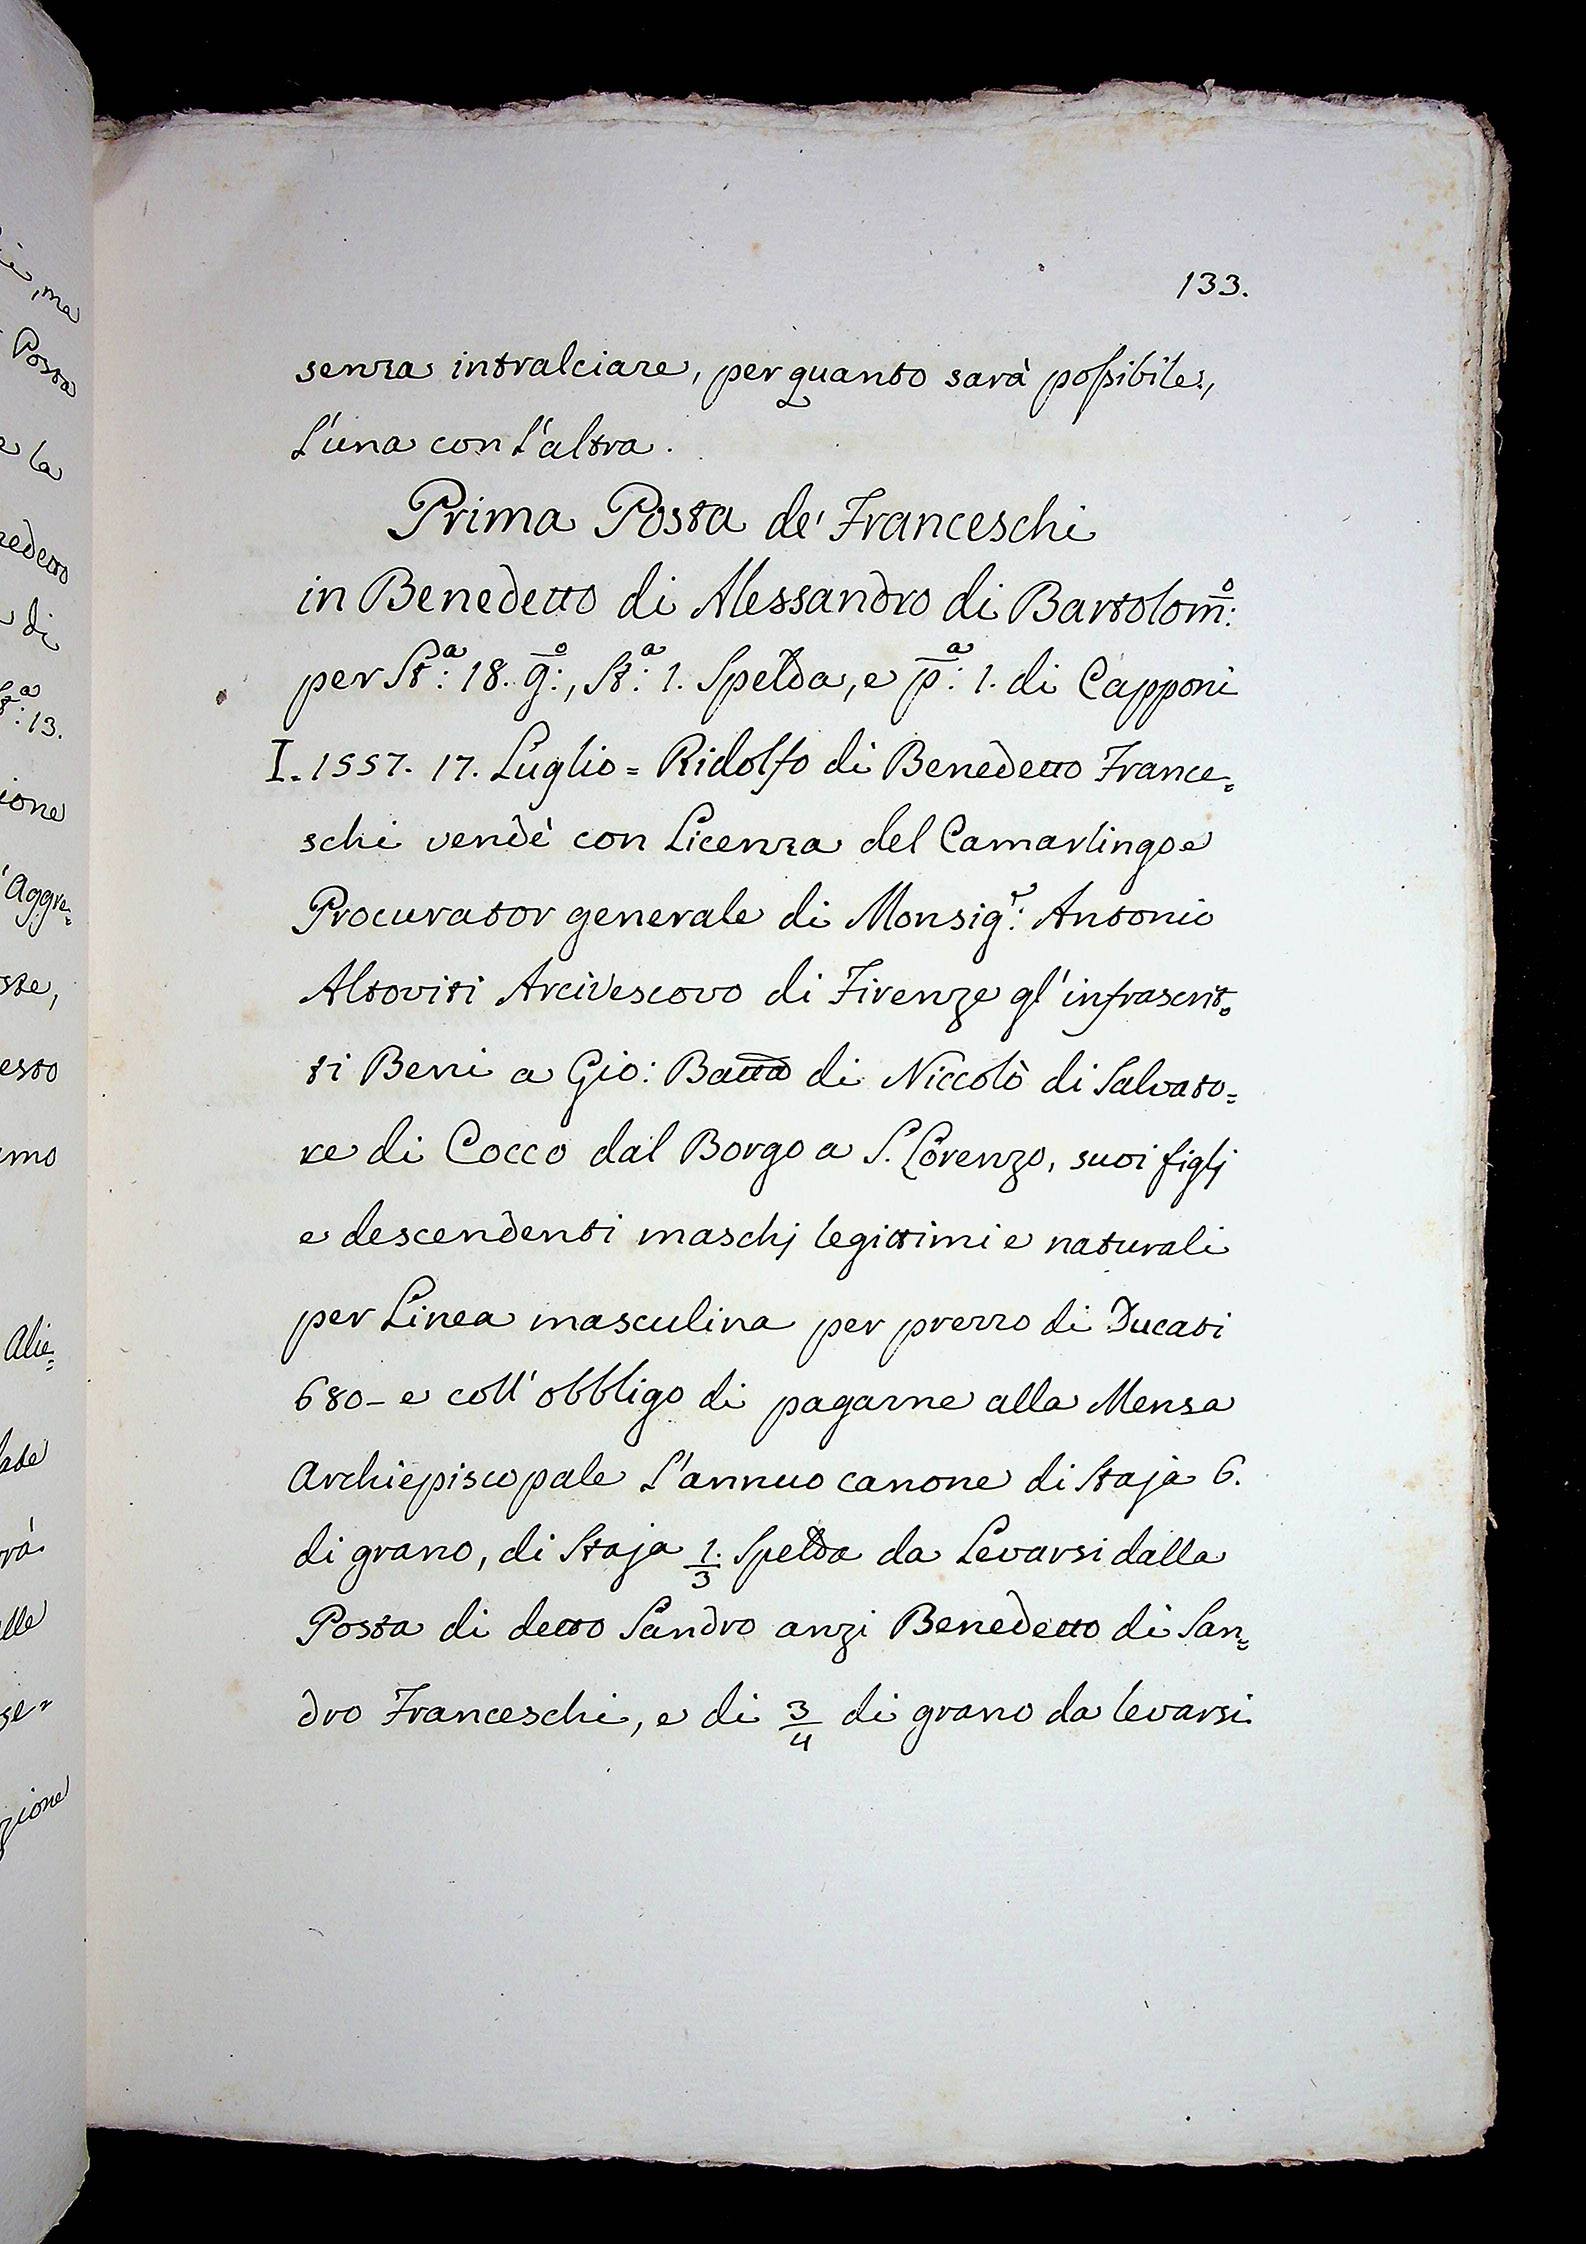 ie, ma
Posta
e la
nedetto
di
St.ª: 13.
ione
Aggre=
ste,
esto
amo
Alie=
late
rà
elle
se=
zione
133.
senza intralciare, per quanto sarà possibile,
l'una con l'altra.
Prima Posta de' Franceschi
in Benedetto di Alessandro di Bartolom̅º:
per St.ª: 18. g̅º:, St.ª: 1. Spelda, e p̅ª: 1. di Capponi
I. 1557. 17. Luglio = Ridolfo di Benedetto France=
schi vendè con Licenza del Camarlingo e
Procurator generale di Monsig.ʳ: Antonio
Altoviti Arcivescovo di Firenze gl'infrascrit=
ti Beni a Gio: Batta di Niccolò di Salvato=
re di Cocco dal Borgo a S. Lorenzo, suoi figlj
e descendenti maschj legittimi e naturali
per Linea masculina per prezzo di Ducati
680 – e coll'obbligo di pagarne alla Mensa
Archiepiscopale l'annuo canone di Staja 6.
di grano, di Staja 1/3 Spelda da Levarsi dalla
Posta di detto Sandro anzi Benedetto di San=
dro Franceschi, e di 3/4 di grano da levarsi